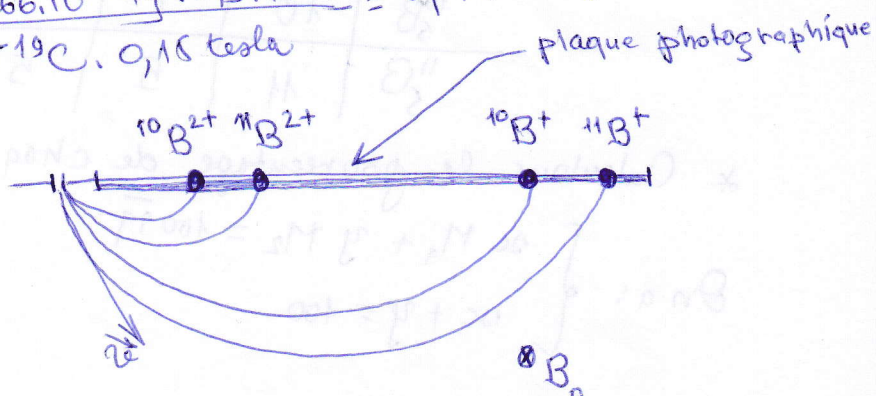 ⁻¹⁹C. 0,16 tesla
plaque photographique
¹⁰B²⁺ ¹¹B²⁺ ¹⁰B⁺ ¹¹B⁺
B₀